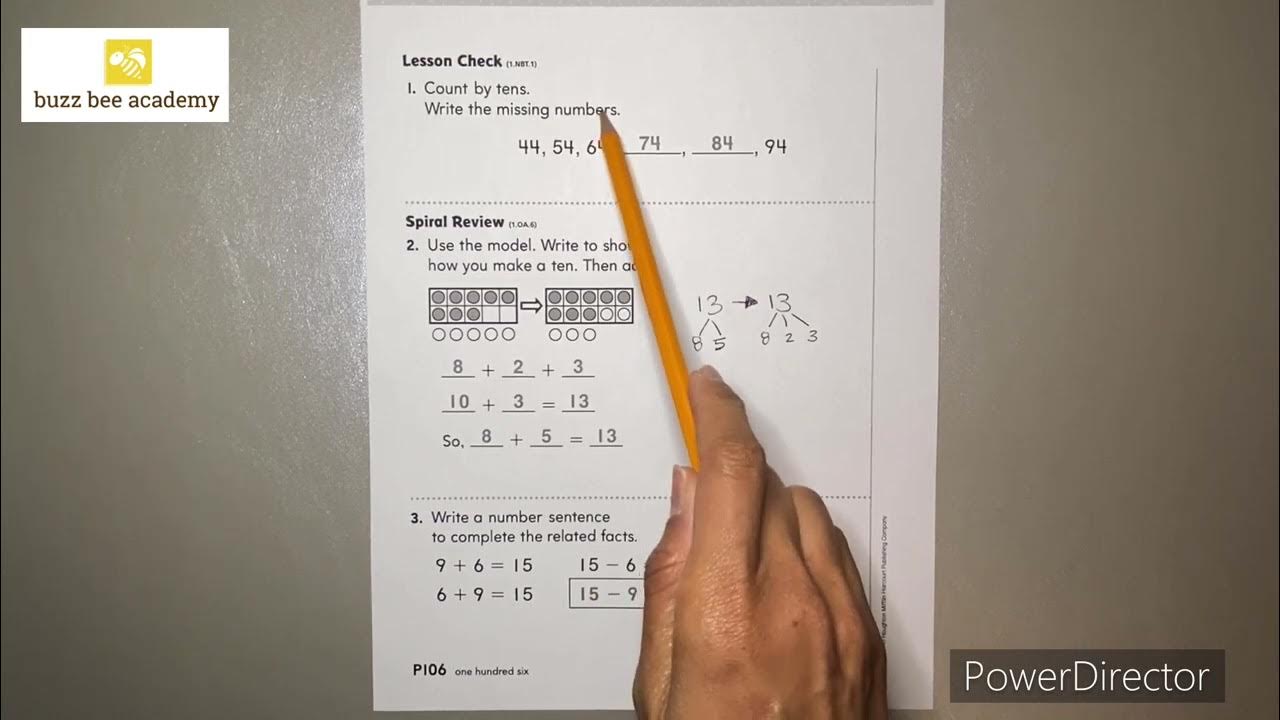 buzz bee academy
Lesson Check (1.NBT.1)
1. Count by tens.
Write the missing numbers.
44, 54, 64 74, 84, 94
Spiral Review (1.OA.6)
2. Use the model. Write to
how you make a ten. Then
13 → 13
8 5 8 2 3
8 + 2 + 3
10 + 3 = 13
So, 8 + 5 = 13
3. Write a number sentence
to complete the related facts.
9 + 6 = 15 15 − 6
6 + 9 = 15 15 − 9
P106 one hundred six
Houghton Mifflin Harcourt Publishing Company
PowerDirector